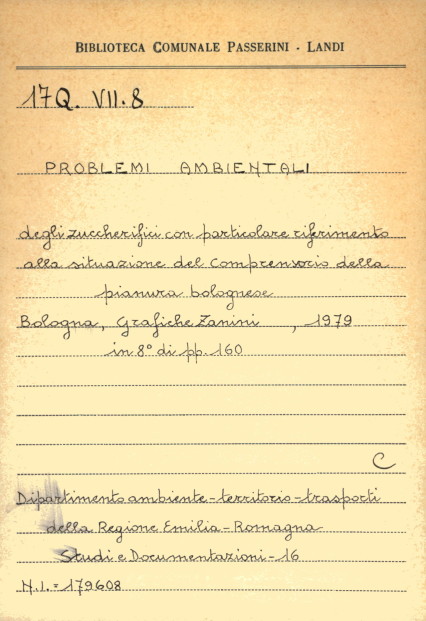 BIBLIOTECA COMUNALE PASSERINI - LANDI
17Q. VII.8
PROBLEMI AMBIENTALI
degli zuccherifici con particolare riferimento
alla situazione del Comprensorio della
pianura bolognese
Bologna, Grafiche Zanini , 1979
in 8° di pp. 160
C
Dipartimento ambiente - territorio - trasporti
della Regione Emilia - Romagna
Studi e Documentazioni - 16
N.I. = 179608